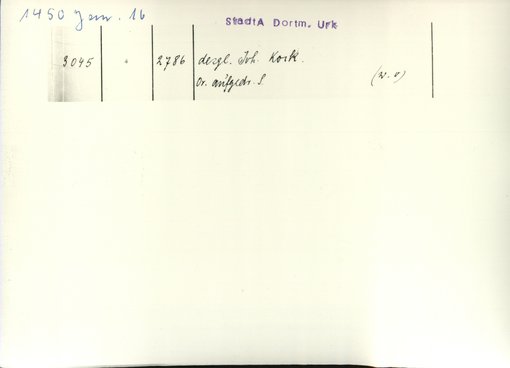 1450 Jan. 16
StadtA Dortm. Urk
3045 " 2786 desgl. Joh. Kork.
Or. aufgedr. S (w. o)